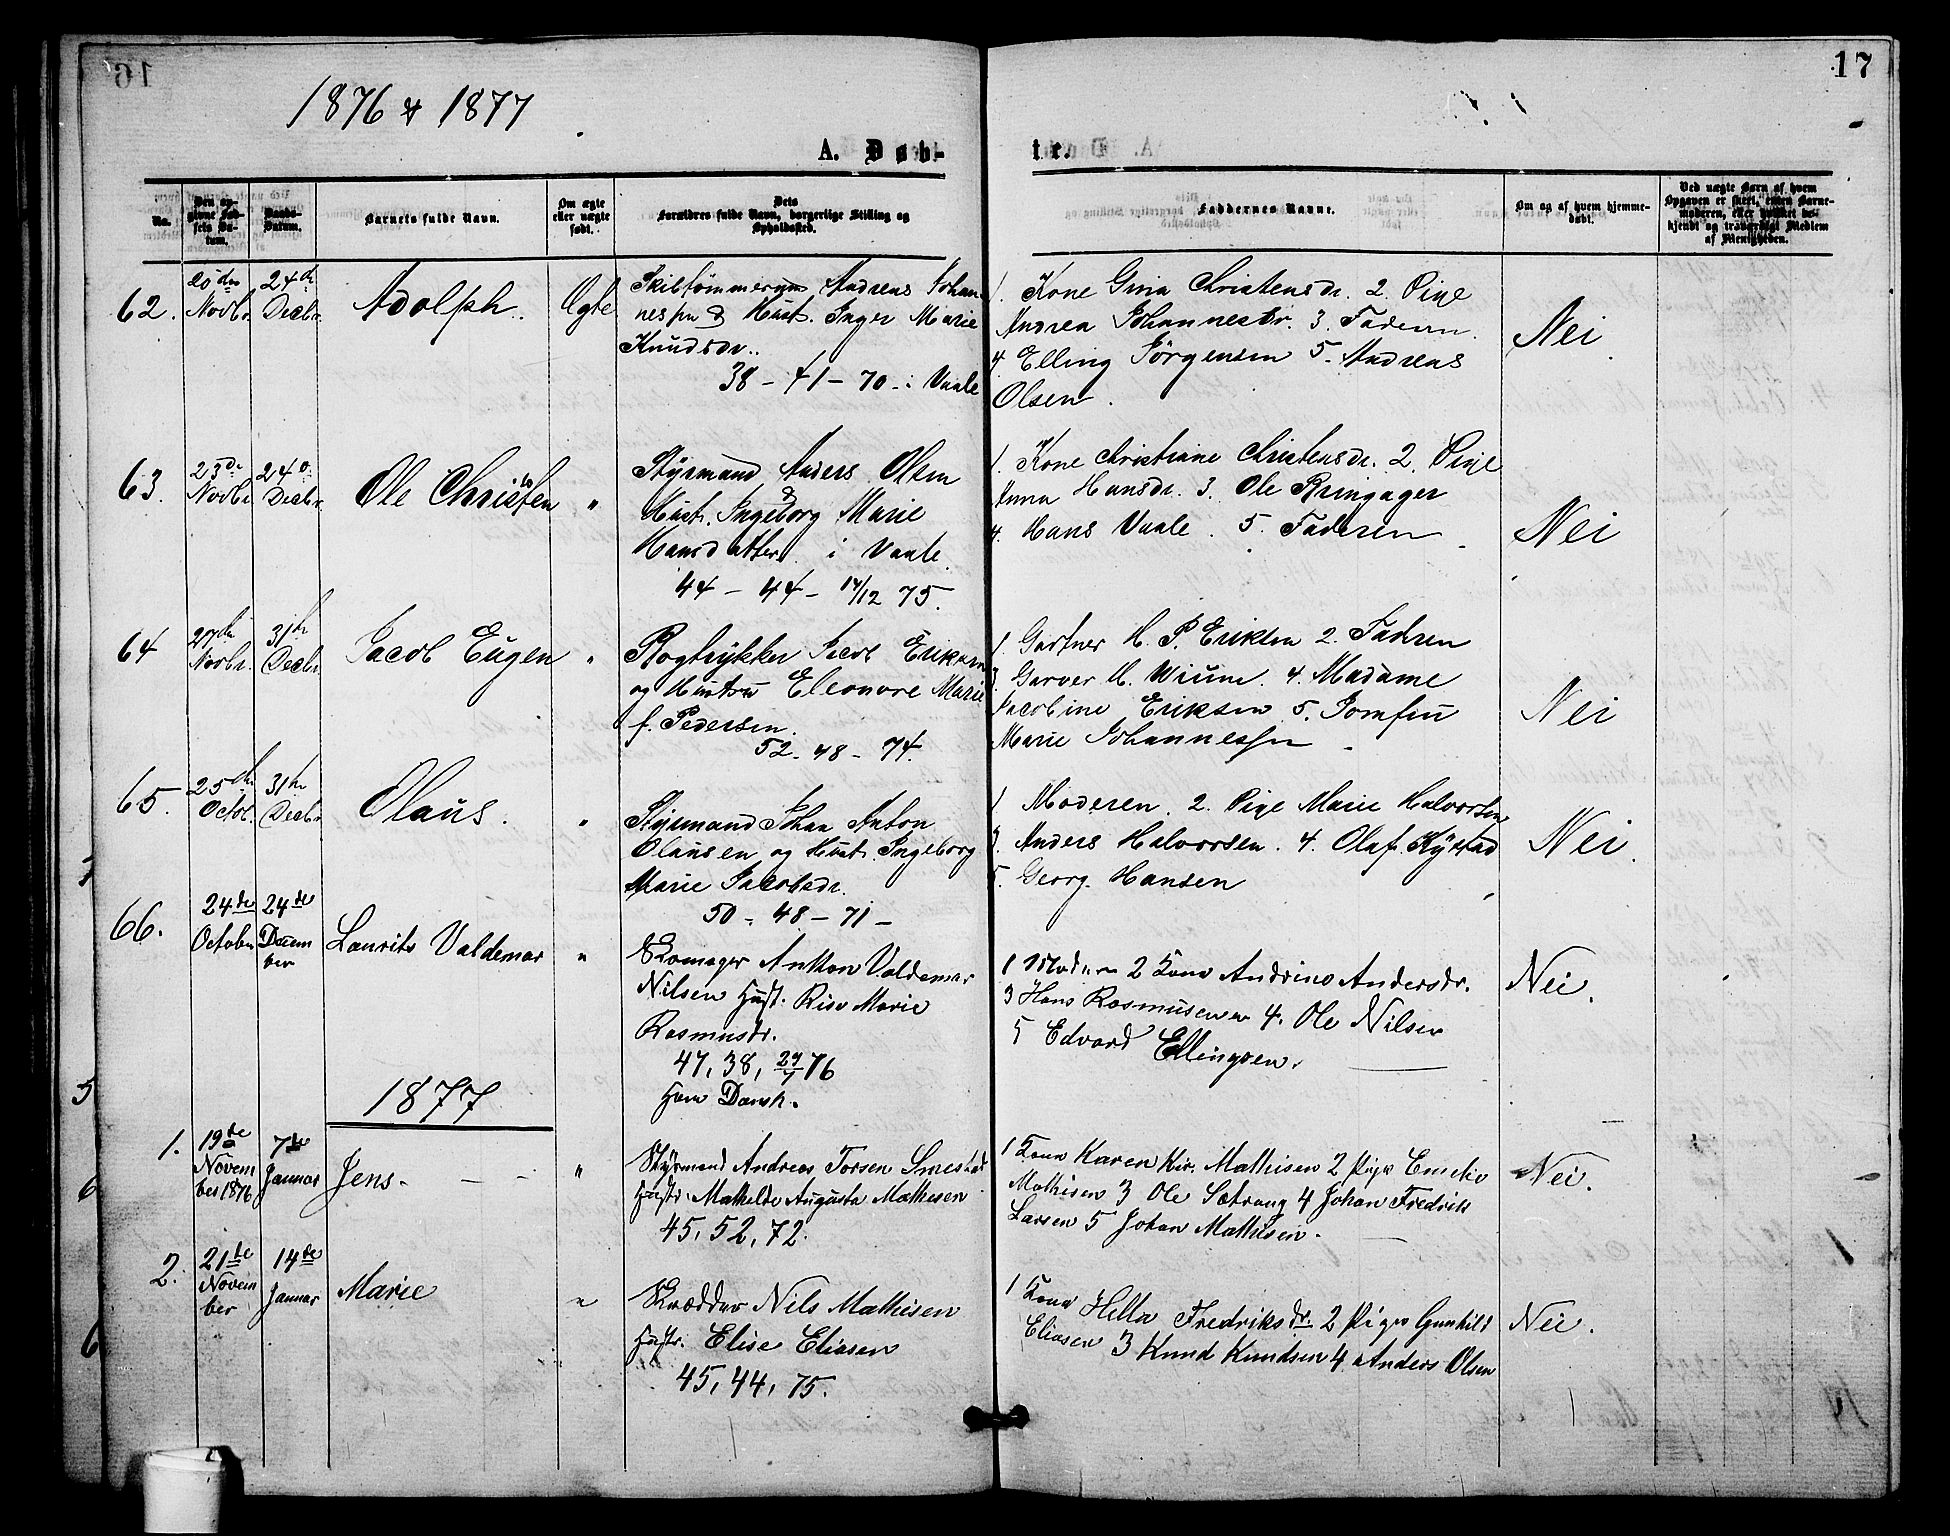 16
17
1876 & 1877
A. Døb-
te.
No.
Den opgivne Fødsels Datum.
Daabs-Datum.
Barnets fulde Navn.
Om ægte eller uægte født.
Dets Forældres fulde Navn, borgerlige Stilling og Opholdssted.
Faddernes Navne.
Om og af hvem hjemmedøbt.
Ved uægte Børn af hvem Opgaven er skeet, enten Barnemoderen, eller hvilket bekjendt og troværdigt Medlem af Menigheden.
62. Novbr. 24d Decbr. Adolph. Ægte
Andreas Johan-
nesen & Hust. Inger Marie
Knudsdr.
38 - 41 - 70 - i Vaale
1. Kone Gina Christensdr. 2. Pige
Andrea Johannesdr. 3. Faderen
4. Elling Jørgensen 5. Andreas
Olsen.
Nei
63. 23de Novbr. 24d Decbr. Ole Christen "
Styrmand Anders Olsen
& Hust. Ingeborg Marie
Hansdatter i Vaale.
44 - 44 - 17/12 75.
1. Kone Christiane Christensdr. 2. Pige
Anna Hansdr. 3. Ole Ringager
4. Hans Vaale. 5. Faderen
Nei
64 27de Novbr. 31te Decbr. Jacob Eugen "
Bogtrykker Jacob Eriksen
og Hustru Eleonore Marie
f. Pedersen.
52 - 48 - 74.
1. Gartner H. P. Eriksen 2. Faderen
3. Garver H. Wium. 4. Madame
Jacobine Eriksen 5. Jomfru
Marie Johannessen
Nei
65. 25de Octob. 31te Decbr. Olaus. "
Styrmand Johan Anton
Olausen og Hust. Ingeborg
Marie Jacobsdr.
50 - 48 - 71 -
1. Moderen. 2. Pige Marie Halvorsen
3. Anders Halvorsen. 4. Olaf
5. Georg Hansen
Nei.
66. 24de October 24de December Laurits Valdemar "
Skomager Anton Valdemar
Nilsen Hust. Marie
Rasmusdr.
47, 38, 76
Ham Dansk.
1 Moderen 2 Kone Andrine Andersdr.
3 Hans Rasmusen 4. Ole Nilsen
5 Edvard Ellingsen.
Nei.
1877
1. 19de November 1876 7de Januar Jens. "
Styrmand Andreas Torsen Smestad
Hustr. Mathilde Augusta Mathisen
45, 52, 72.
1 Kone Karen Kir. Mathisen 2 Pige Emelie
Mathisen 3 Ole Sætrang 4 Johan Fredrik
Larsen 5 Johan Mathisen.
Nei.
2. 21de November 14de Januar Marie "
Skrædder Nils Mathisen
Hustr. Elise Eliasen
45, 44, 75.
1 Kone Fredriksdr. 2 Pige Gunhild
Eliasen 3 Knud Knudsen 4 Anders Olsen
Nei.